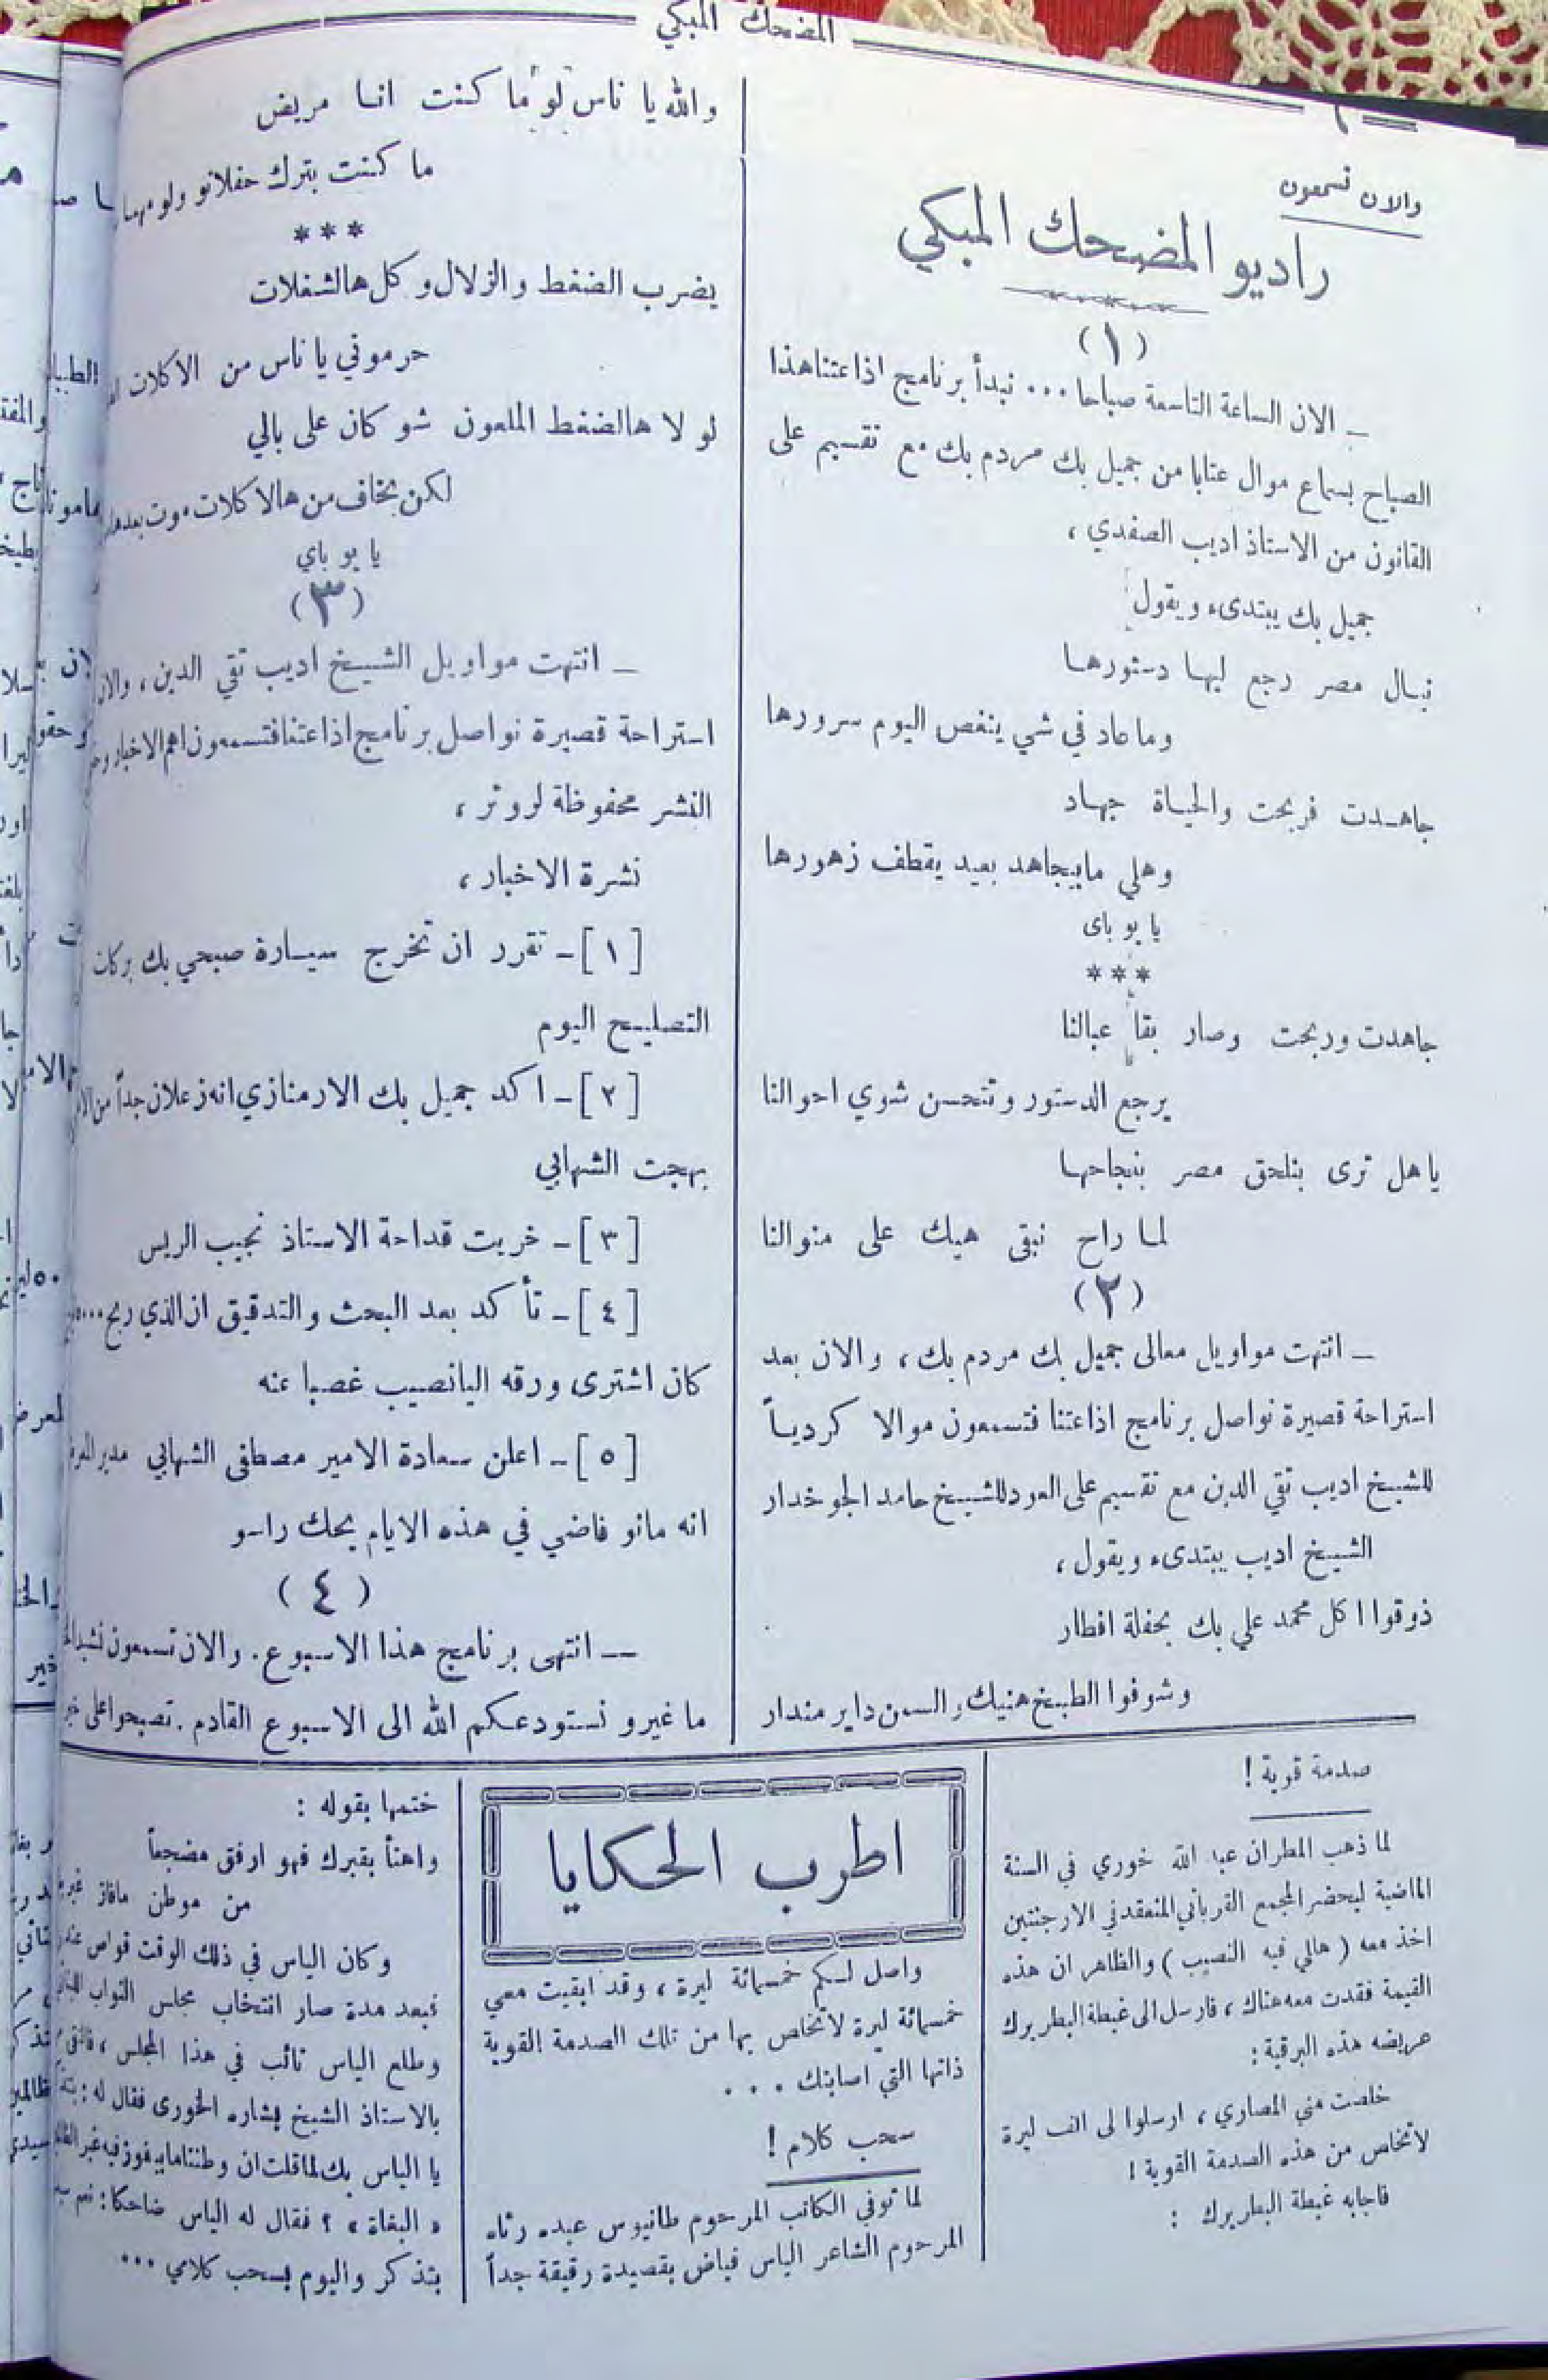 المضحك المبكي
والان تسمعون
راديو المضحك المبكي
(١)
ــ الان الساعة التاسعة صباحا ... نبدأ برنامج اذاعتنا هذا
الصباح بسماع موال عتابا من جميل بك مردم بك مع تقسيم على
القانون من الاستاذ اديب الصفدي ،
جميل بك يبتدىء ويقول
نيال مصر رجع ليها دستورها
وما عاد في شي ينغص اليوم سرورها
جاهدت فربحت والحياة جهاد
وهلي مابيجاهد بعيد يقطف زهورها
يا بو باى
***
جاهدت وربحت وصار بقا عبالنا
يرجع الدستور وتتحسن شوي احوالنا
يا هل ترى بنلحق مصر بنجاحها
لما راح نبقى هيك على منوالنا
(٢)
ــ انتهت مواويل معالى جميل بك مردم بك ، والان بعد
استراحة قصيرة نواصل برنامج اذاعتنا فتسمعون موالا كردياً
للشيخ اديب تقي الدين مع تقسيم على العود للشيخ حامد الجوخدار
الشيخ اديب يبتدىء ويقول ،
ذوقوا اكل محمد علي بك بحفلة افطار
وشوفوا الطبيخ هنيك والسمن داير مندار
والله يا ناس لو ما كنت انا مريض
ما كنت بترك حفلاتو ولو مهما
***
يضرب الضغط والزلال وكل هالشغلات
حرموني يا ناس من الاكلات
لو لا هالضغط الملعون شو كان على بالي
لكن بخاف من هالاكلات موت بعدها
يا بو باي
(٣)
ــ انتهت مواويل الشيخ اديب تقي الدين ، والان
استراحة قصيرة نواصل برنامج اذاعتنا فتسمعون اهم الاخبار
النشر محفوظة لروتر ،
نشرة الاخبار ،
[١] ــ تقرر ان تخرج سيارة صبحي بك بركات
التصليح اليوم
[٢] ــ اكد جميل بك الارمنازي انه زعلان جداً من
بهجت الشهابي
[٣] ــ خربت قداحة الاستاذ نجيب الريس
[٤] ــ تأكد بعد البحث والتدقيق ان الذي ربح
كان اشترى ورقه اليانصيب غصبا عنه
[٥] ــ اعلن سعادة الامير مصطفى الشهابي مدير
انه مانو فاضي في هذه الايام يحك راسو
(٤)
ــ انتهى برنامج هذا الاسبوع . والان تسمعون
ما غيرو نستودعكم الله الى الاسبوع القادم . تصبحوا على
صدمة قوية !
لما ذهب المطران عبد الله خوري في السنة
الماضية ليحضر المجمع القرباني المنعقد في الارجنتين
اخذ معه ( هالي فيه النصيب ) والظاهر ان هذه
القيمة فقدت معه هناك ، فارسل الى غبطة البطريرك
عريضه هذه البرقية :
خلصت مني المصاري ، ارسلوا لى الف ليرة
لاتخلص من هذه الصدمة القوية !
فاجابه غبطة البطريرك :
اطرب الحكايا
واصل لكم خمسمائة ليرة ، وقد ابقيت معي
خمسمائة ليرة لاتخلص بها من تلك الصدمة القوية
ذاتها التي اصابتك ...
سحب كلام !
لما توفي الكاتب المرحوم طانيوس عبده رثاه
المرحوم الشاعر الياس فياض بقصيدة رقيقة جداً
ختمها بقوله :
واهنأ بقبرك فهو ارفق مضجعاً
من موطن مافاز غير
وكان الياس في ذلك الوقت
فبعد مدة صار انتخاب مجلس النواب
وطلع الياس نائب في هذا المجلس ،
بالاستاذ الشيخ بشاره الخورى فقال له :
يا الياس بك لما قلت ان وطننا مابيفوز فيه غير
« البغاة » ؟ فقال له الياس ضاحكا : نعم
بتذكر واليوم بسحب كلامي ...